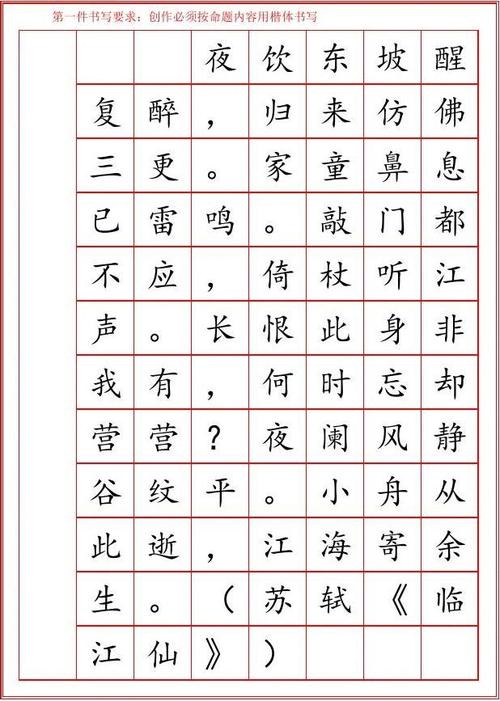 第一件书写要求：创作必须按命题内容用楷体书写
夜饮东坡醒
复醉，归来仿佛
三更。家童鼻息
已雷鸣。敲门都
不应，倚杖听江
声。长恨此身非
我有，何时忘却
营营？夜阑风静
谷纹平。小舟从
此逝，江海寄余
生。（苏轼《临
江仙》）